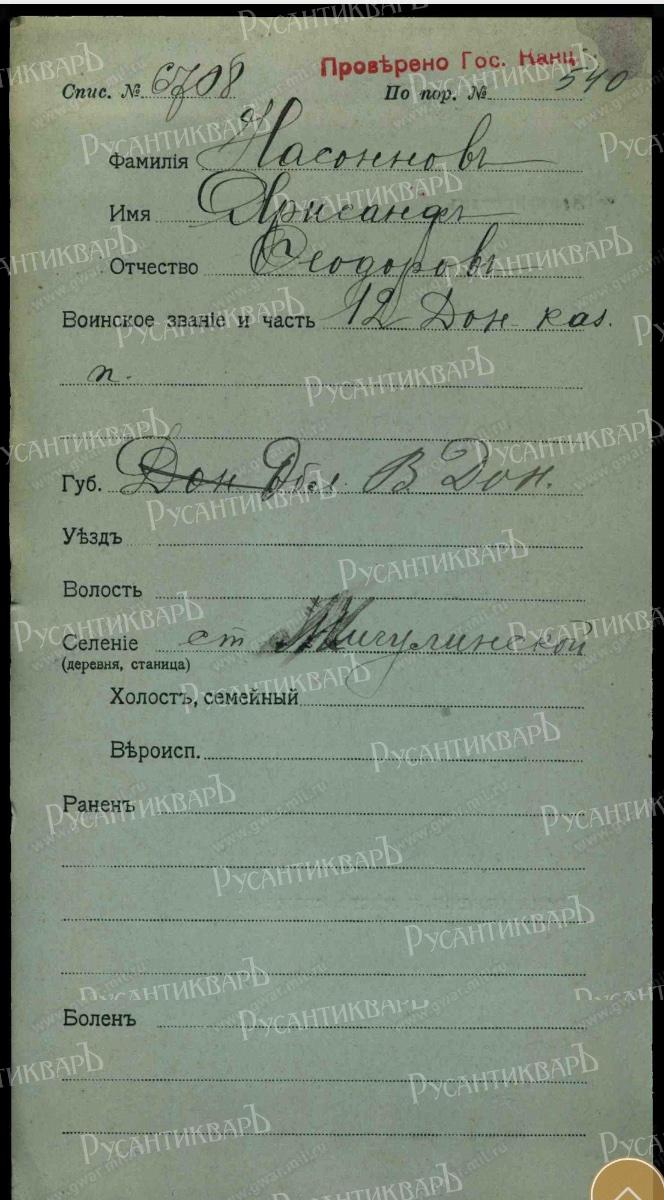 Провѣрено Гос. Канц.
Спис. № 6708 По пор. № 540
Фамилія Насонновъ
Имя Хрисанфъ
Отчество Ѳеодоровъ
Воинское званіе и часть 12 Дон каз.
п.
Губ. Дон Обл. В. Дон.
Уѣздъ
Волость
Селеніе ст Мигулинской
(деревня, станица)
Холостъ, семейный
Вѣроисп.
Раненъ
Боленъ
РусантикварЪ
www.gwar.mil.ru